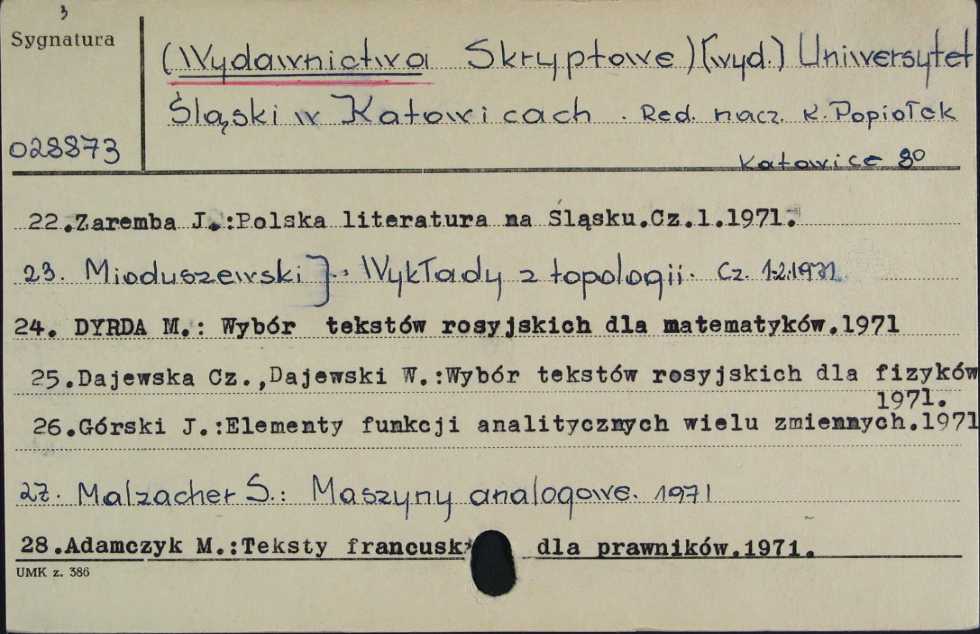 3
Sygnatura
(Wydawnictwa Skryptowe) [wyd.] Uniwersytet
Śląski w Katowicach. Red. nacz. K. Popiołek
028873
Katowice 8°
22.Zaremba J.:Polska literatura na Śląsku.Cz.1.1971.
23. Mioduszewski J.: Wykłady z topologii. Cz. 1-2.1971
24. DYRDA M.: Wybór tekstów rosyjskich dla matematyków.1971
25.Dajewska Cz.,Dajewski W.:Wybór tekstów rosyjskich dla fizyków
1971.
26.Górski J.:Elementy funkcji analitycznych wielu zmiennych.1971
27. Malzacher S.: Maszyny analogowe. 1971
28.Adamczyk M.:Teksty francusk dla prawników.1971.
UMK z. 386